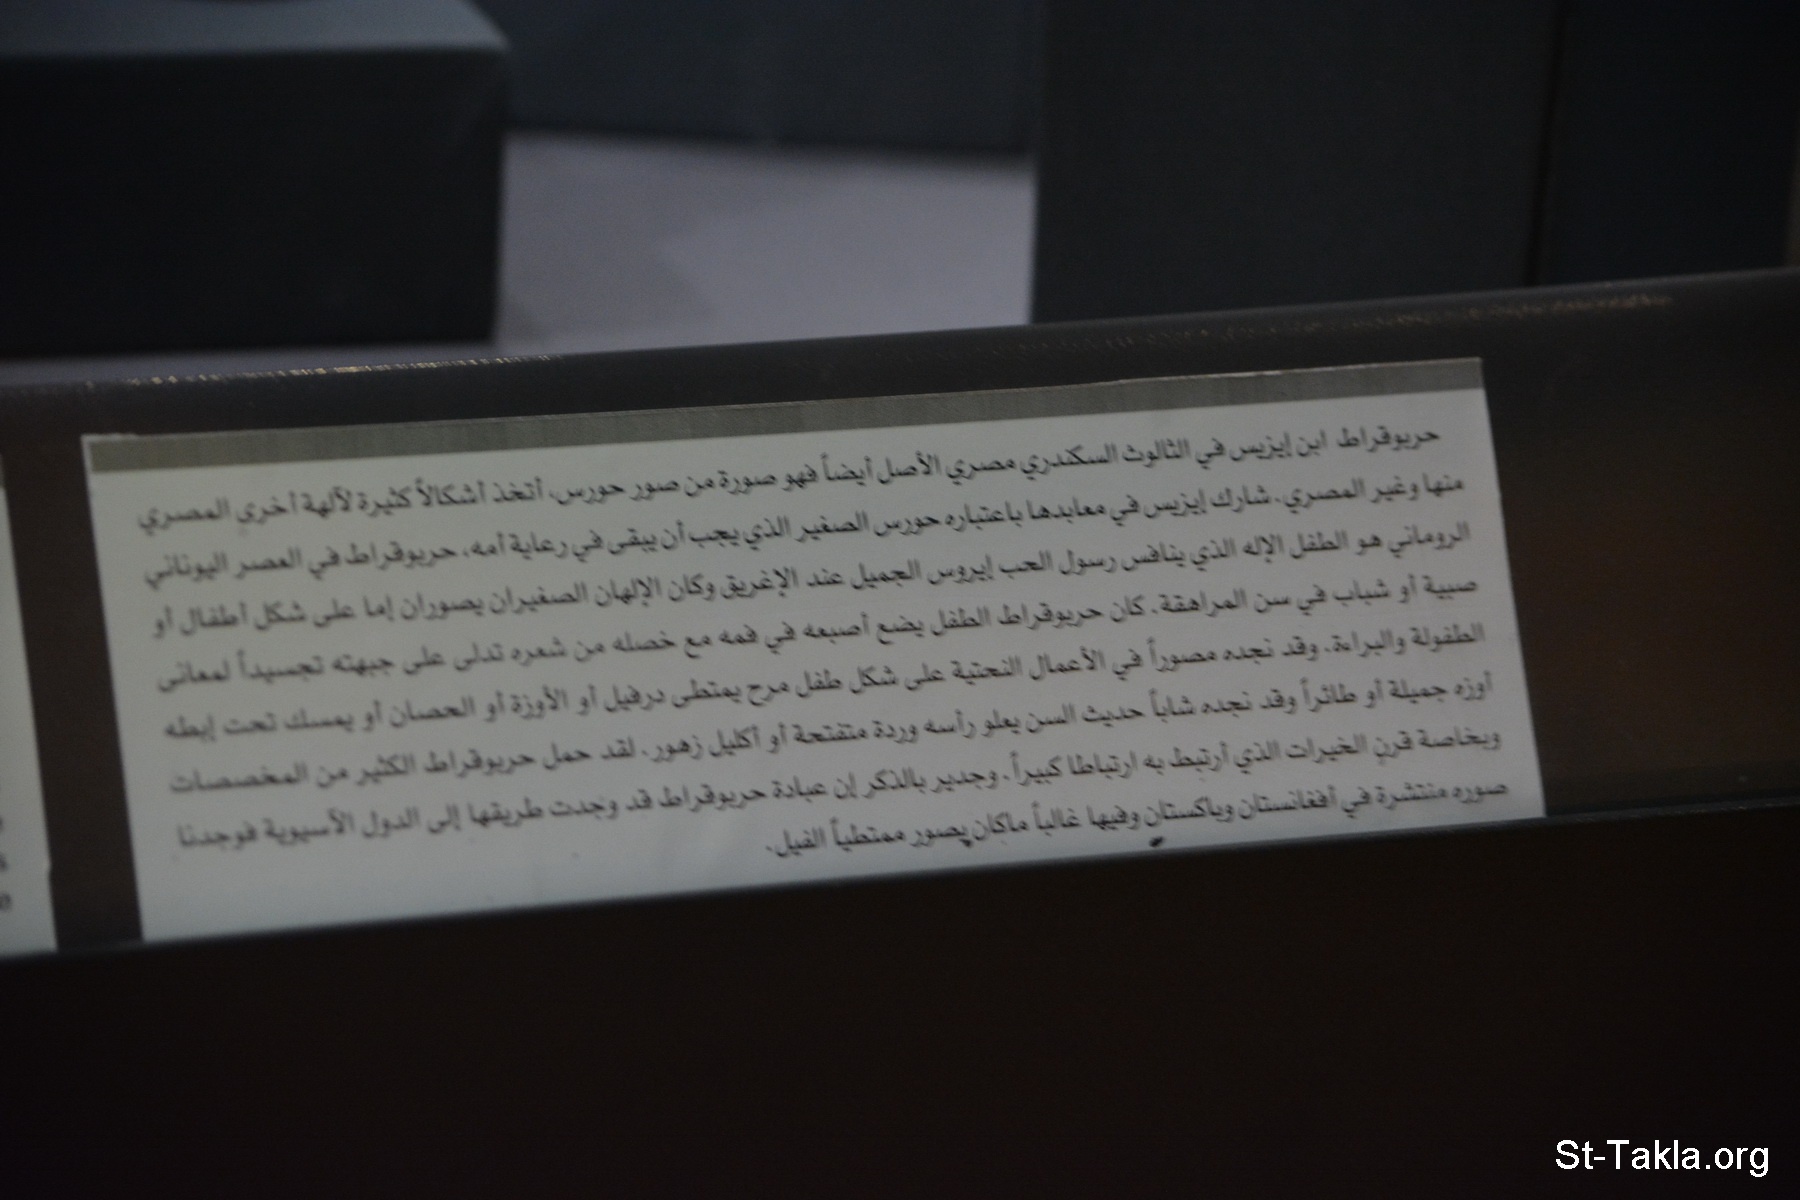 حربوقراط ابن إيزيس في الثالوث السكندري مصري الأصل أيضاً فهو صورة من صور حورس، أتخذ أشكالاً كثيرة لآلهة أخري المصري
منها وغير المصري. شارك إيزيس في معابدها باعتباره حورس الصغير الذي يجب أن يبقى في رعاية أمه، حربوقراط في العصر اليوناني
الروماني هو الطفل الإله الذي ينافس رسول الحب إيروس الجميل عند الإغريق وكان الإلهان الصغيران يصوران إما على شكل أطفال أو
صبية أو شباب في سن المراهقة. كان حربوقراط الطفل يضع أصبعه في فمه مع خصله من شعره تدلى على جبهته تجسيداً لمعانى
الطفولة والبراءة. وقد نجده مصوراً في الأعمال النحتية على شكل طفل مرح يمتطى درفيل أو الأوزة أو الحصان أو يمسك تحت إبطه
أوزه جميلة أو طائراً وقد نجده شاباً حديث السن يعلو رأسه وردة متفتحة أو أكليل زهور. لقد حمل حربوقراط الكثير من المخصصات
وبخاصة قرن الخيرات الذي أرتبط به ارتباطا كبيراً. وجدير بالذكر إن عبادة حربوقراط قد وجدت طريقها إلى الدول الآسيوية فوجدنا
صوره منتشرة في أفغانستان وباكستان وفيها غالباً ماكان يصور ممتطياً الفيل.
St-Takla.org